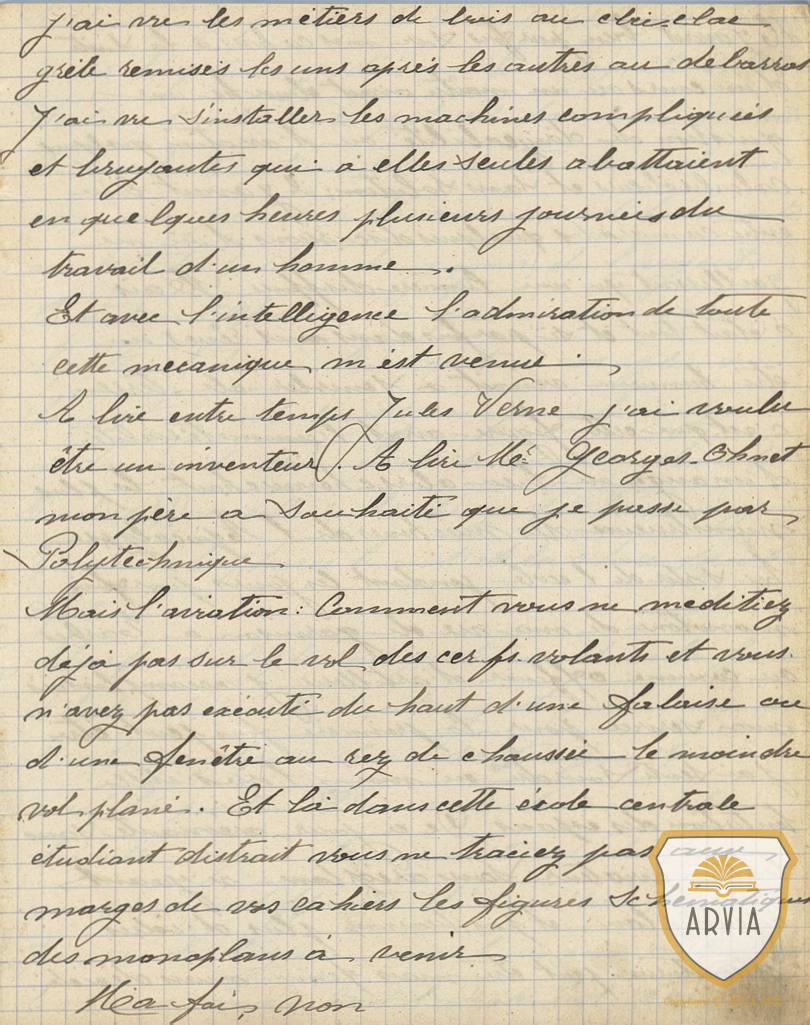 J'ai vu les métiers de bois au clic-clac
grêle remisés les uns après les autres au débarras
J'ai vu s'installer les machines compliquées
et bruyantes qui à elles seules abattaient
en quelques heures plusieurs journées du
travail d'un homme.
Et avec l'intelligence l'admiration de toute
cette mécanique m'est venue.
A lire entre temps Jules Verne j'ai voulu
être un inventeur. A lire Mr Georges-Ohnet
mon père a souhaité que je passe par
Polytechnique
Mais l'aviation: Comment vous ne méditiez
déjà pas sur le vol des cerfs-volants et vous
n'avez pas exécuté du haut d'une falaise ou
d'une fenêtre au rez de chaussée le moindre
vol plané. Et là dans cette école centrale
étudiant distrait vous ne traciez pas aux
marges de vos cahiers les figures schématiques
des monoplans à venir
Ma foi, non
ARVIA